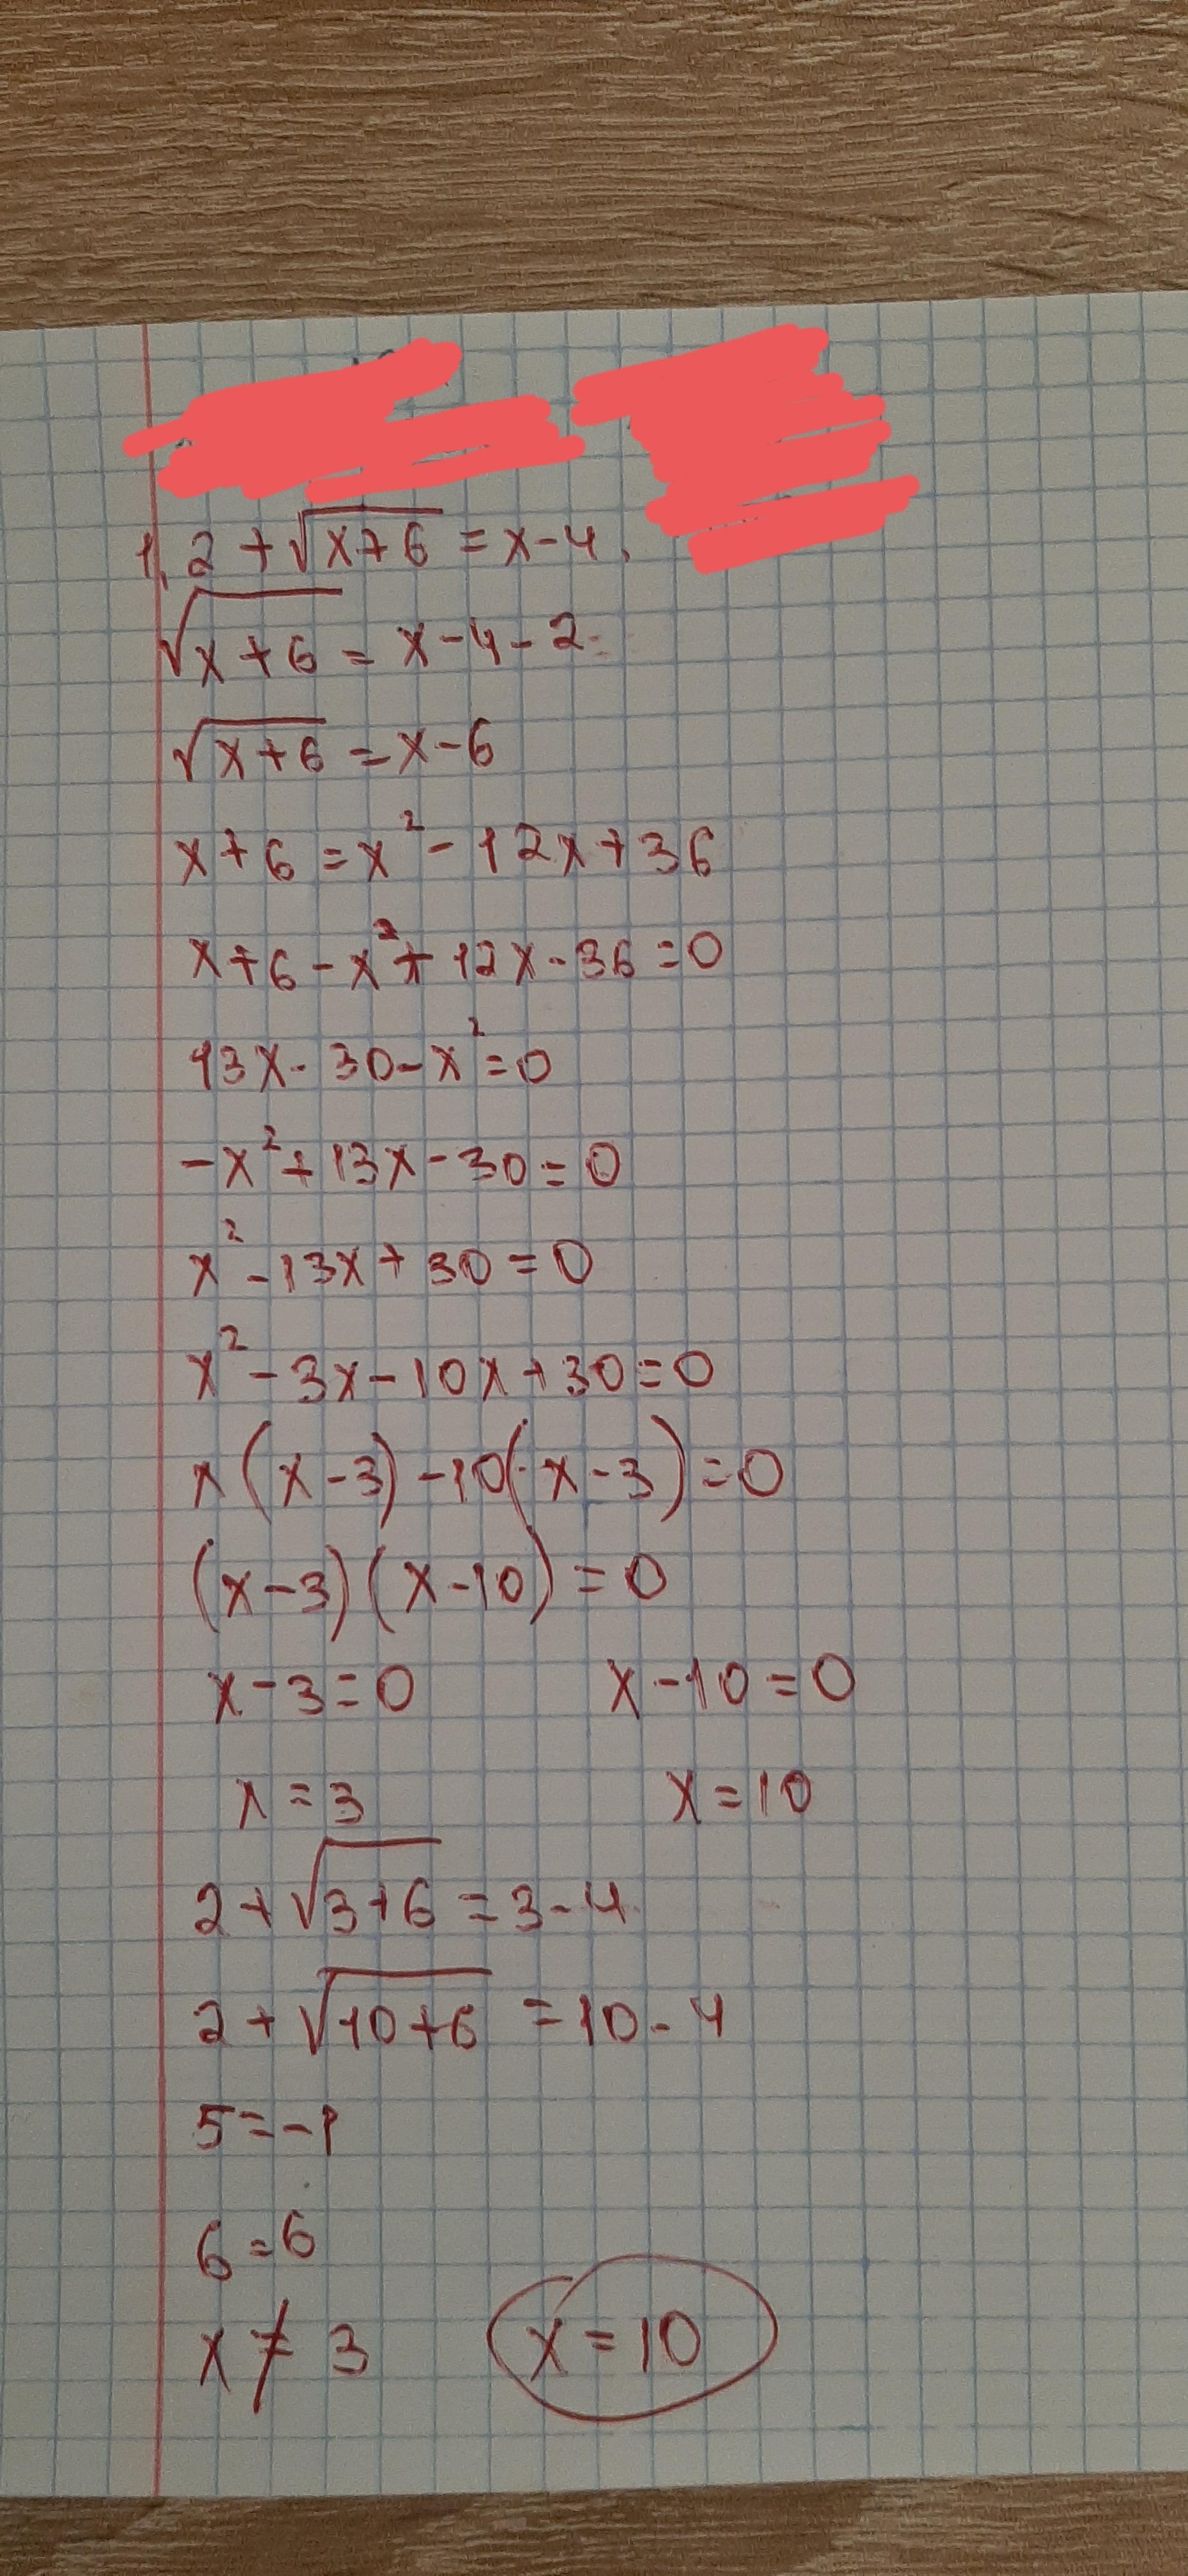 1. 2 + √x+6 = x-4.
√x+6 = x-4-2
√x+6 = x-6
x+6 = x² - 12x+36
x+6-x²+12x-36=0
13x-30-x²=0
-x²+13x-30=0
x²-13x+30=0
x²-3x-10x+30=0
x(x-3)-10(x-3)=0
(x-3)(x-10)=0
x-3=0 x-10=0
x=3 x=10
2+√3+6 = 3-4
2+√10+6 = 10-4
5=-1
6=6
x≠3 x=10